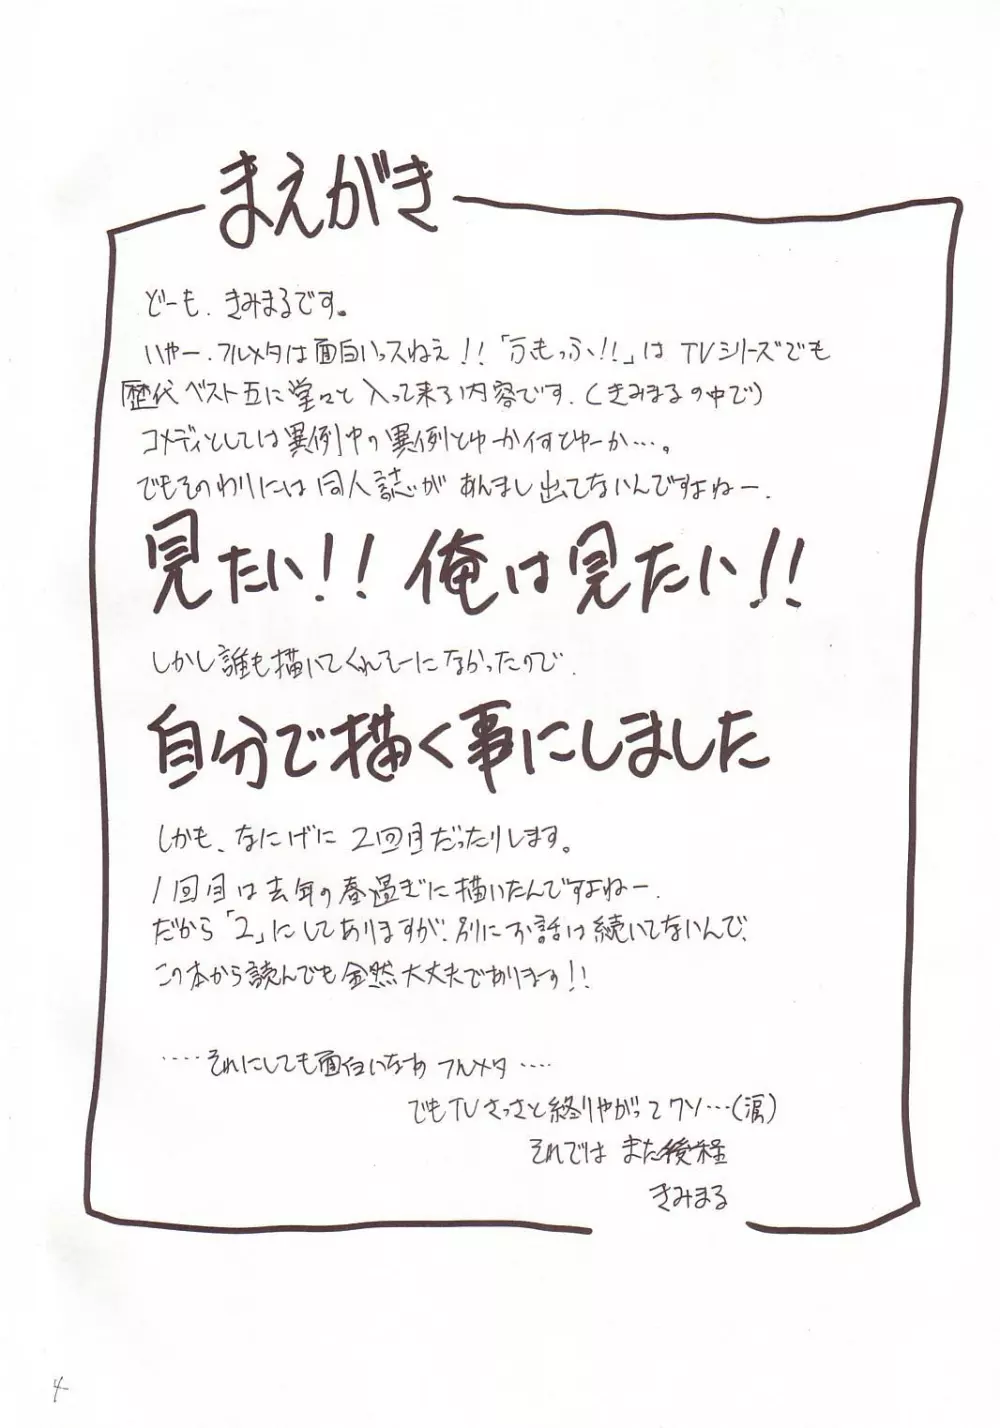 まえがき
どーも、きみまるです。
いやー、フルメタは面白いっスねえ!!「ふもっふ!!」はTVシリーズでも
歴代ベスト五に堂々と入って来る内容です。(きみまるの中で)
コメディとしては異例中の異例とゆーか何とゆーか…。
でもそのわりには同人誌があんまし出てないんですよねー。
見たい!!俺は見たい!!
しかし誰も描いてくれそーになかったので、
自分で描く事にしました
しかも、なにげに2回目だったりします。
1回目は去年の春過ぎに描いたんですよねー。
だから「2」にしてありますが、別にお話は続いてないんで、
この本から読んでも全然大丈夫であります!!
……それにしても面白いなあフルメタ……
でもTVさっさと終りやがってクソ…(涙)
それではまた後程
きみまる
4